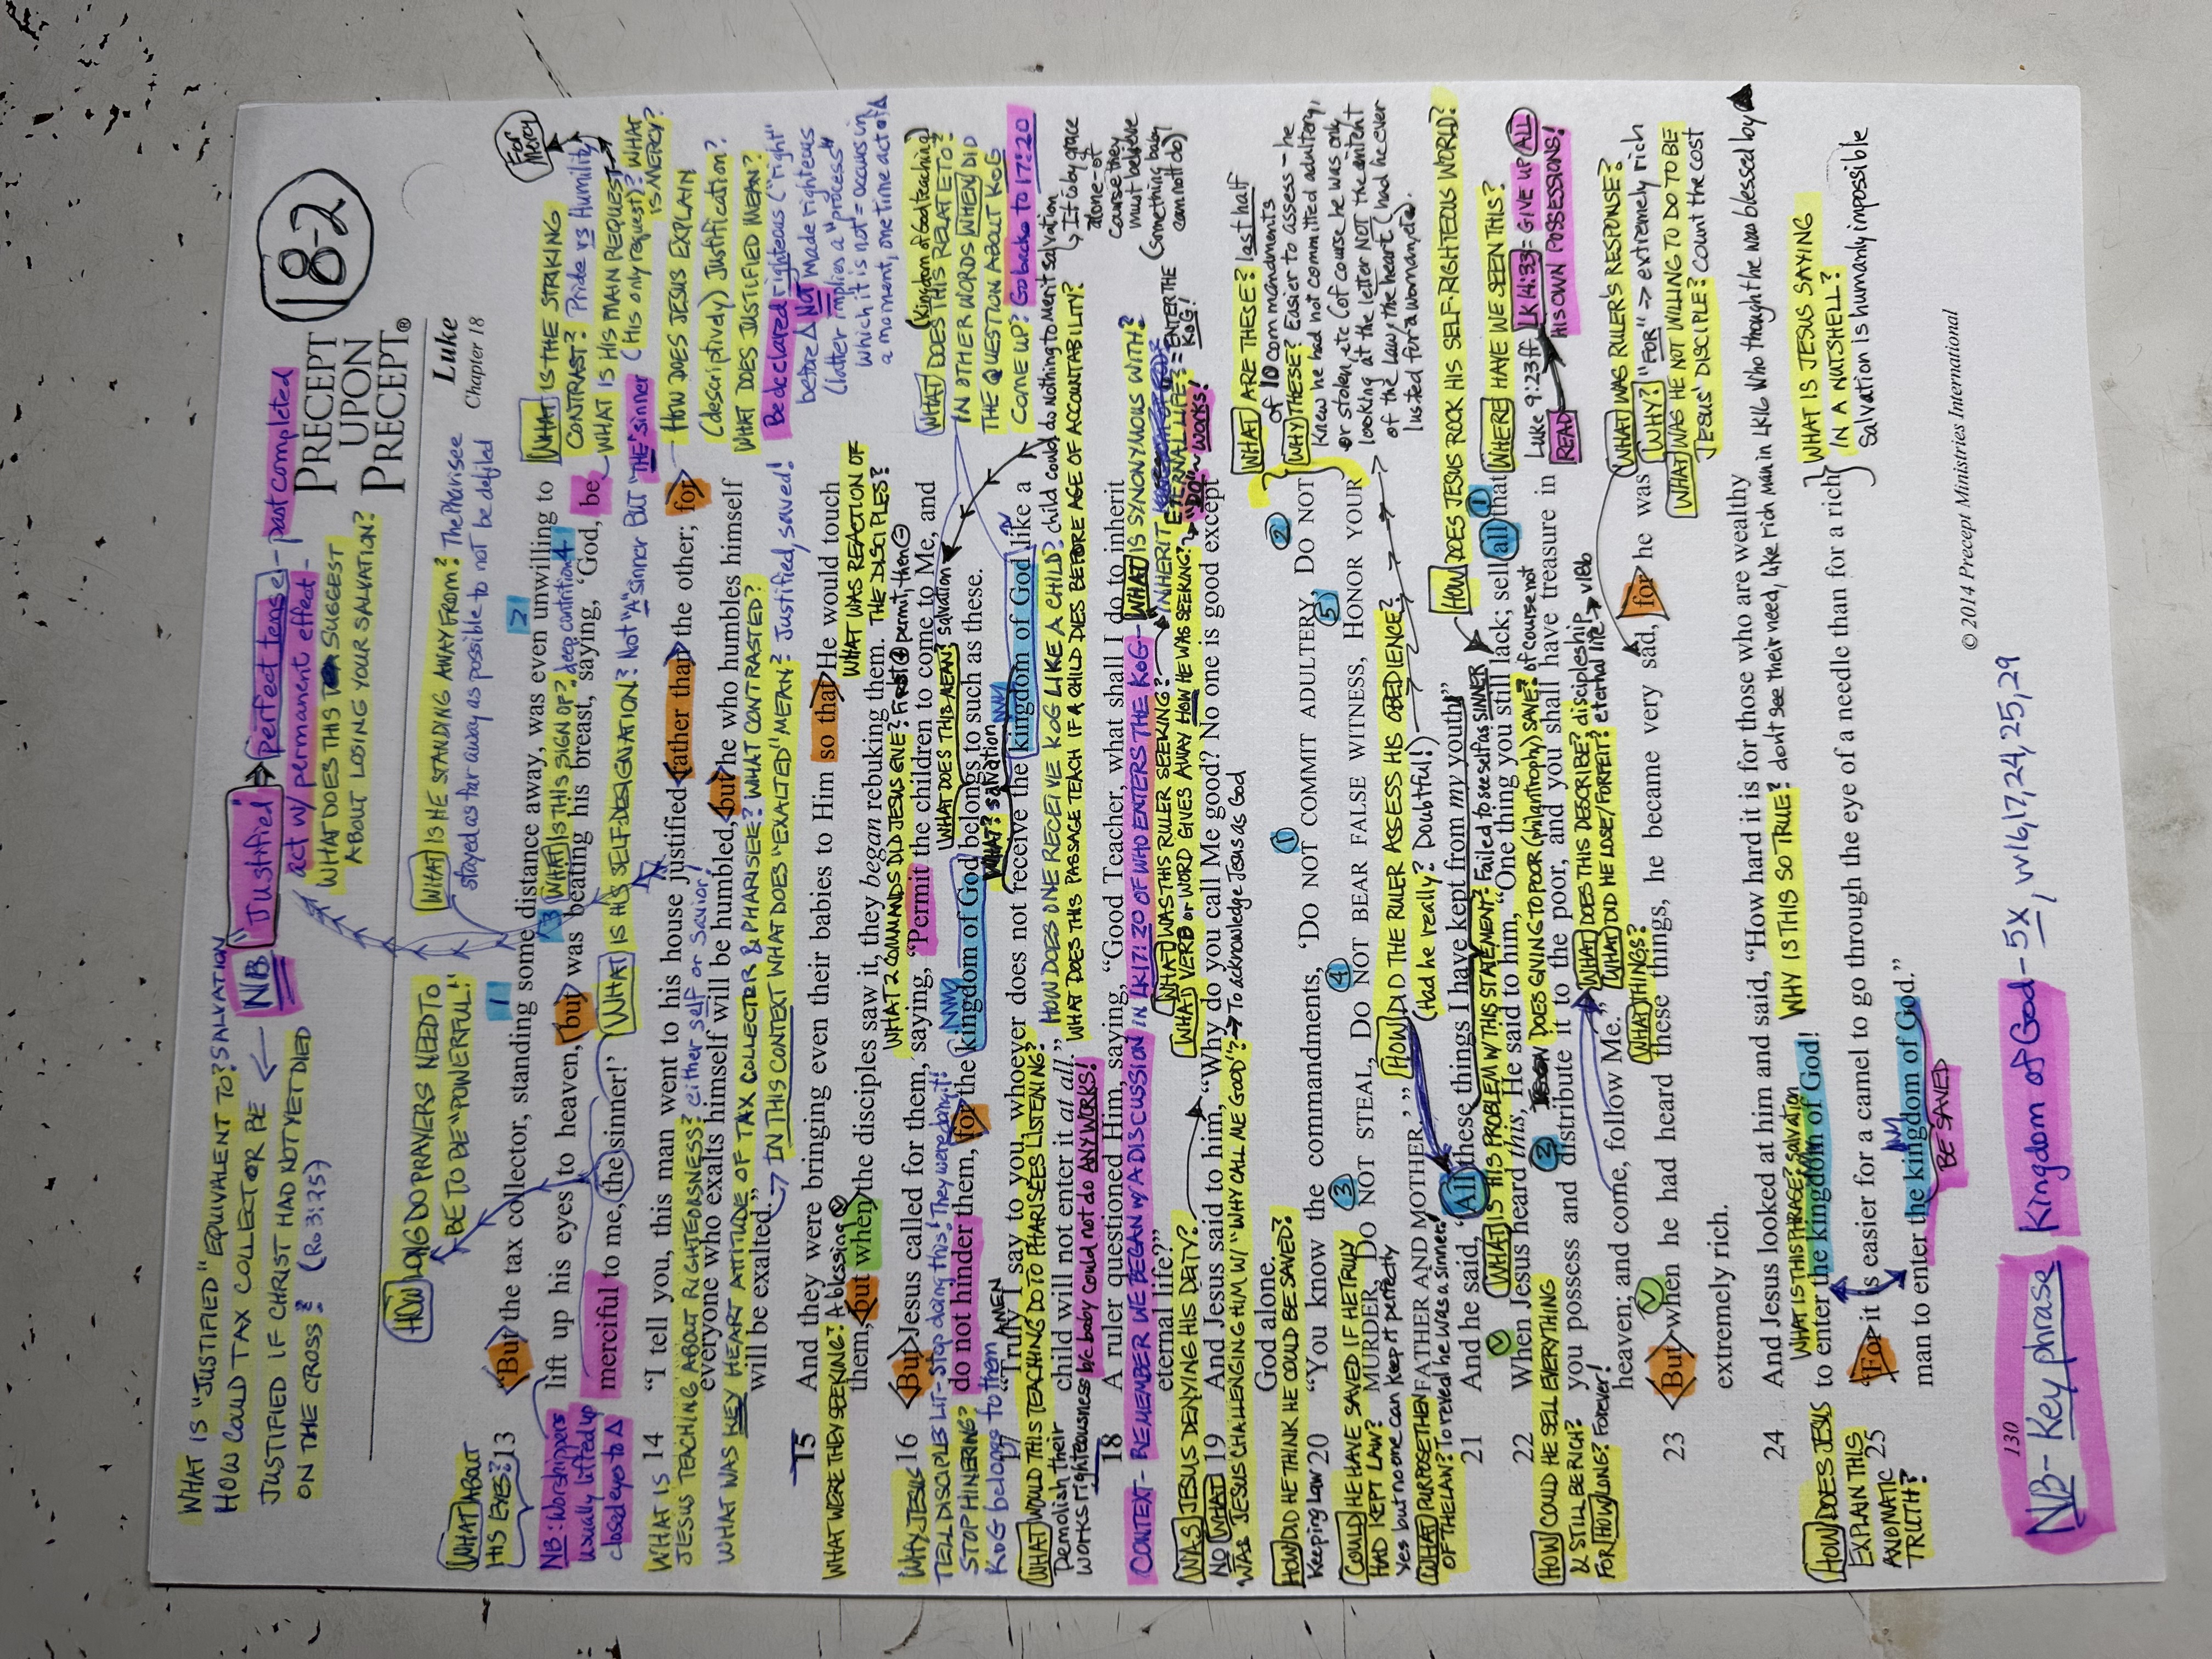 WHAT IS "JUSTIFIED" EQUIVALENT TO? SALVATION
HOW COULD TAX COLLECTOR BE
JUSTIFIED IF CHRIST HAD NOT YET DIED
ON THE CROSS? (Ro 3:25)
NB "Justified" → perfect tense - past completed
act w/ permanent effect -
WHAT DOES THIS SUGGEST
ABOUT LOSING YOUR SALVATION?
18-2
PRECEPT
UPON
PRECEPT®
Luke
Chapter 18
HOW LONG DO PRAYERS NEED TO
BE TO BE "POWERFUL!"
WHAT IS HE STANDING AWAY FROM? The Pharisee
stayed as far away as possible to not be defiled
WHAT ABOUT
HIS EYES?
1
2
13 "But the tax collector, standing some distance away, was even unwilling to
3 WHAT IS THIS SIGN OF? deep contrition 4
lift up his eyes to heaven, but was beating his breast, saying, 'God, be
merciful to me, the sinner!'
NB: Worshippers
usually lifted up
closed eyes to Δ
WHAT IS HIS SELF-DESIGNATION? Not "A" sinner BUT "THE" sinner
For Mercy
WHAT IS THE STRIKING
CONTRAST? Pride vs Humility
WHAT IS HIS MAIN REQUEST
(His only request)? WHAT
IS MERCY?
14 "I tell you, this man went to his house justified rather than the other; for
WHAT IS
JESUS TEACHING ABOUT RIGHTEOUSNESS? either self or Savior!
everyone who exalts himself will be humbled, but he who humbles himself
WHAT WAS KEY HEART ATTITUDE OF TAX COLLECTER & PHARISEE? WHAT CONTRASTED?
will be exalted."
IN THIS CONTEXT WHAT DOES "EXALTED" MEAN? Justified, saved!
HOW DOES JESUS EXPLAIN
(descriptively) Justification?
WHAT DOES JUSTIFIED MEAN?
Be declared righteous ("right"
before Δ NOT made righteous
(latter implies a "process"
which it is not = occurs in
a moment, one time act of Δ
15 And they were bringing even their babies to Him so that He would touch
WHAT WERE THEY SEEKING? A blessing
WHAT WAS REACTION OF
THE DISCIPLES?
them, but when the disciples saw it, they began rebuking them.
WHAT 2 COMMANDS DID JESUS GIVE? FIRST ⊕ permit, then ⊖
16 But Jesus called for them, saying, "Permit the children to come to Me, and
WHY JESUS
TELL DISCIPLES LIT - Stop doing this! They were doing it!
WHAT DOES THIS MEAN? Salvation
do not hinder them, for the kingdom of God belongs to such as these.
STOP HINDERING?
KoG belongs to them
AMEN
WHAT? Salvation
17 "Truly I say to you, whoever does not receive the kingdom of God like a
WHAT WOULD THIS TEACHING DO TO PHARISEES LISTENING? HOW DOES ONE RECEIVE KOG LIKE A CHILD? child could do nothing to merit salvation
child will not enter it at all."
WHAT DOES THIS PASSAGE TEACH IF A CHILD DIES BEFORE AGE OF ACCOUNTABILITY?
Demolish their
works righteousness b/c baby could not do ANY WORKS!
(Kingdom of God teaching)
WHAT DOES THIS RELATE TO?
IN OTHER WORDS WHEN DID
THE QUESTION ABOUT KOG
COME UP? Go back to 17:20
If is by grace
alone - of
course they
must believe
(Something baby
can not do)
18 A ruler questioned Him, saying, "Good Teacher, what shall I do to inherit
CONTEXT - REMEMBER WE BEGAN w/ A DISCUSSION IN LK 17:20 OF WHO ENTERS THE KOG - WHAT IS SYNONYMOUS WITH?
INHERIT
ETERNAL LIFE? = ENTER THE
KoG!
eternal life?"
WHAT WAS THIS RULER SEEKING?
WHAT VERB or WORD GIVES AWAY HOW HE WAS SEEKING? → "DO" ~ WORKS!
19 And Jesus said to him, "Why do you call Me good? No one is good except
WAS JESUS DENYING HIS DEITY?
NO WHAT
WAS JESUS CHALLENGING HIM W/ "WHY CALL ME GOOD"? → To acknowledge Jesus as God
God alone.
HOW DID HE THINK HE COULD BE SAVED?
Keeping Law
1
2
20 "You know the commandments, 'DO NOT COMMIT ADULTERY, DO NOT
3
4
5
MURDER, DO NOT STEAL, DO NOT BEAR FALSE WITNESS, HONOR YOUR
FATHER AND MOTHER.'"
COULD HE HAVE SAVED IF HE TRULY
HAD KEPT LAW?
Yes but no one can keep it perfectly
WHAT PURPOSE THEN
OF THE LAW? To reveal he was a sinner!
HOW DID THE RULER ASSESS HIS OBEDIENCE?
(Had he really? Doubtful!)
WHAT ARE THESE? last half
of 10 commandments
WHY THESE? Easier to assess - he
knew he had not committed adultery,
or stolen, etc (of course he was only
looking at the letter NOT the intent
of the Law, the heart (had he ever
lusted for a woman, etc).
21 And he said, "All these things I have kept from my youth."
WHAT IS PROBLEM WITH THIS STATEMENT? Failed to see self as SINNER
HOW DOES JESUS ROCK HIS SELF-RIGHTEOUS WORLD?
22 When Jesus heard this, He said to him, "One thing you still lack; sell all that 1
DOES GIVING TO POOR (philanthropy) SAVE? of course not
2
you possess and distribute it to the poor, and you shall have treasure in
WHAT DOES THIS DESCRIBE? discipleship
heaven; and come, follow Me."
WHAT DID HE LOSE/FORFEIT? eternal life! → v18b
HOW COULD HE SELL EVERYTHING
& STILL BE RICH?
FOR HOW LONG? Forever!
WHERE HAVE WE SEEN THIS?
Luke 9:23ff LK 14:33 = GIVE UP ALL
READ HIS OWN POSSESSIONS!
WHAT THINGS?
23 But when he had heard these things, he became very sad, for he was
extremely rich.
WHAT WAS RULER'S RESPONSE?
WHY? "FOR" → extremely rich
WHAT WAS HE NOT WILLING TO DO TO BE
JESUS' DISCIPLE? Count the cost
24 And Jesus looked at him and said, "How hard it is for those who are wealthy
WHAT IS THIS PHRASE? Salvation WHY IS THIS SO TRUE? don't see their need, like rich man in Lk 16 who thought he was blessed by Δ
to enter the kingdom of God!
25 "For it is easier for a camel to go through the eye of a needle than for a rich
man to enter the kingdom of God."
BE SAVED
HOW DOES JESUS
EXPLAIN THIS
AXIOMATIC
TRUTH?
WHAT IS JESUS SAYING
IN A NUTSHELL?
Salvation is humanly impossible
© 2014 Precept Ministries International
130
NB - Key phrase Kingdom of God - 5X, vv 16, 17, 24, 25, 29